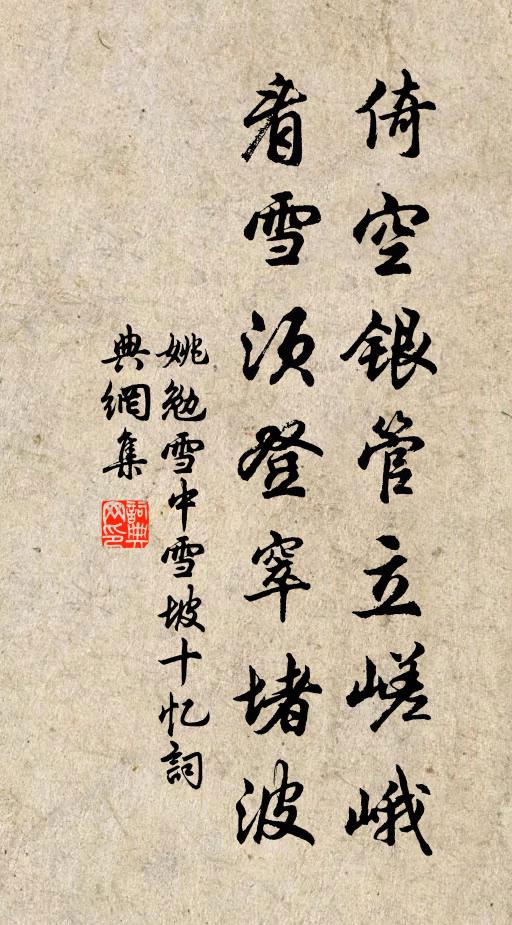 倚空銀管立嵯峨
看雪須登窣堵波
姚勉雪中雪坡十忆詞
典網集
詞典
网印